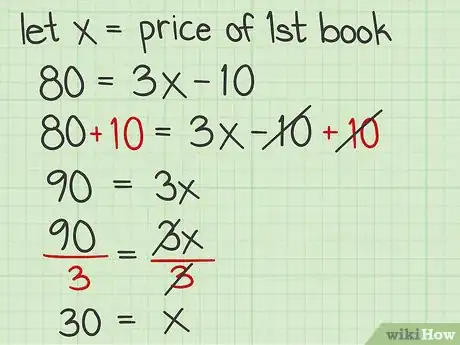 let x = price of 1st book
80 = 3x - 10
80 + 10 = 3x - 10 + 10
90 = 3x
90/3 = 3x/3
30 = x
wikiHow